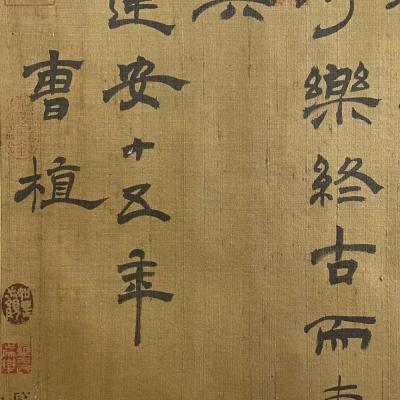 樂終古而
建安十五年
曹植